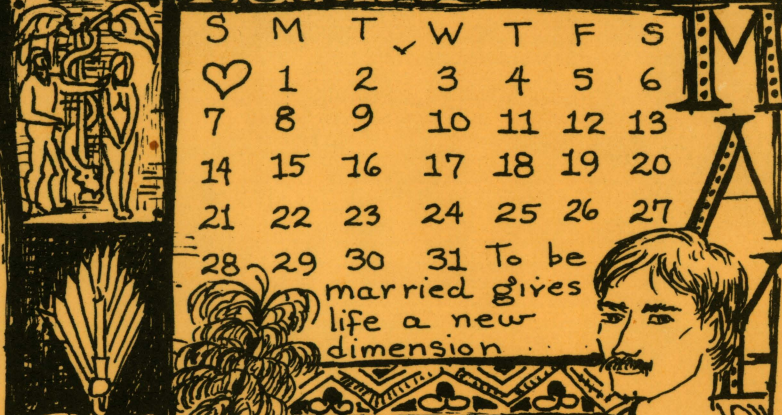 S M T W T F S
1 2 3 4 5 6
7 8 9 10 11 12 13
14 15 16 17 18 19 20
21 22 23 24 25 26 27
28 29 30 31 To be
married gives
life a new
dimension
MA